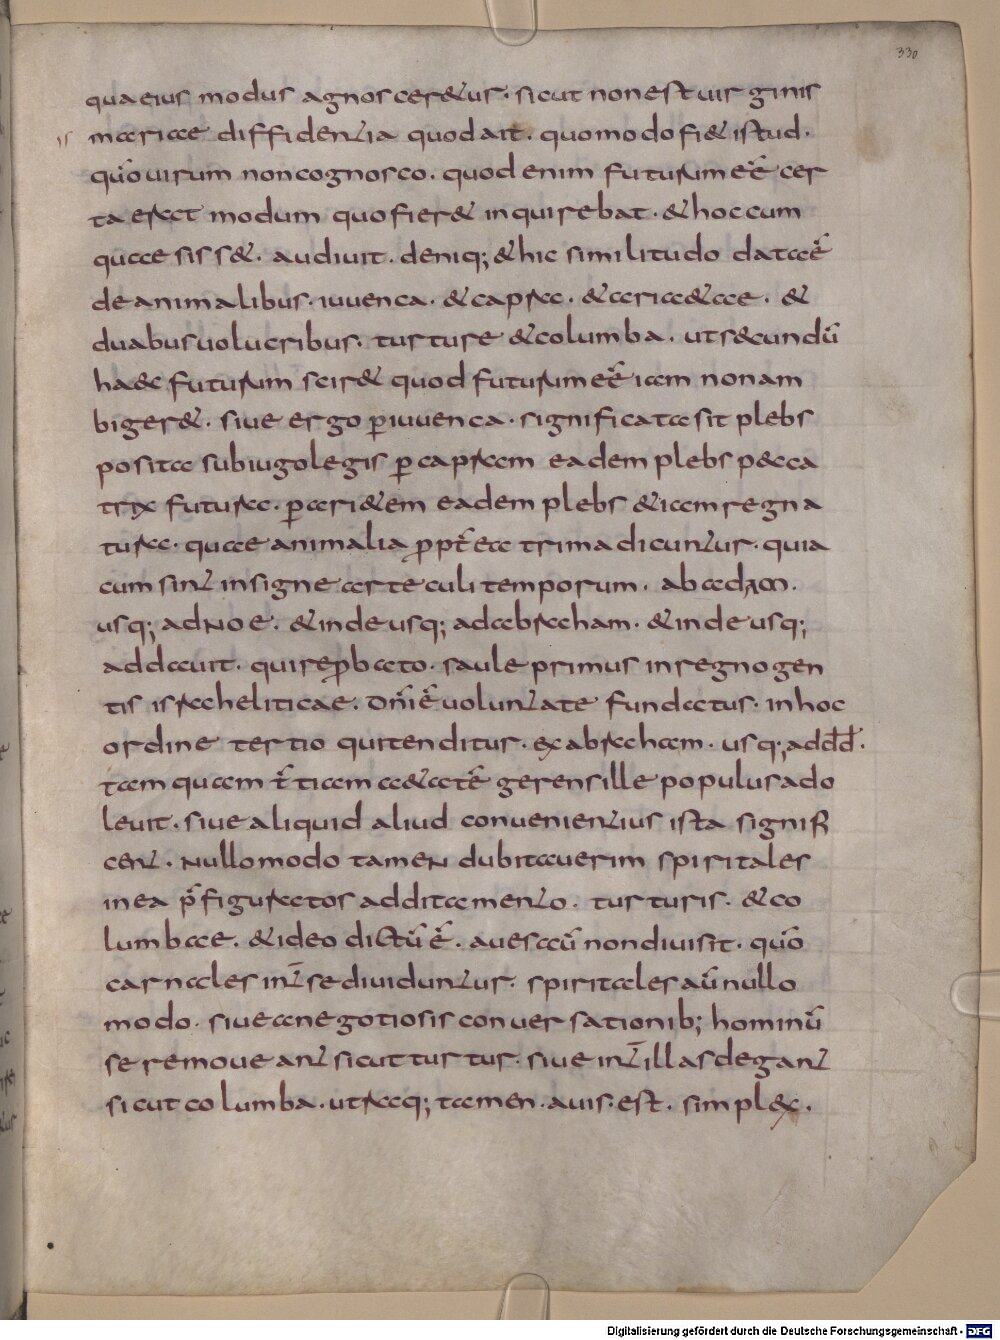 330
qua eius modus agnosceretur. sicut non est uirginis
mariae diffidentia quod ait. quomodo fiet istud.
qūo uirum non cognosco. quod enim futurum eē̄ cer
ta erat modum quo fieret inquirebat. & hoc cum
quaesisset. audiuit. deniq; & hic similitudo data ē
de animalibus. iuuenca. & capra. & ariete. &
duabus uolucribus. turture & columba. ut secundū
haec futurum sciret quod futurum eē̄ iam non am
bigeret. siue ergo ꝑ iuuenca. significata sit plebs
posita sub iugo legis ꝑ capram eadem plebs pecca
trix futura. ꝑ arietem eadem plebs etiam regna
tura. quae animalia ꝓpt̄ea trima dicuntur. quia
cum sint insigne arte culi temporum. ab adam.
usq; ad noe. & inde usq; ad abraham. & inde usq;
ad dauit. qui reꝓbato. saule primus in regno gen
tis israheliticae. dn̄i ē uoluntate fundatus. in hoc
ordine tertio qui tenditur. ex abraham. usq; ad dd̄.
tam quam t̄tiam aetatē gerens ille populus ado
leuit. siue aliquid aliud conuenientius ista signifi
cent. nullo modo tamen dubitauerim spiritales
in ea p̄figuratos additamento. turturis. & co
lumbae. & ideo dictū ē. aues aū non diuisit. qūo
carnales int̄ se diuiduntur. spiritales aū nullo
modo. siue a negotiosis conuersationib; hominū
se remoueant sicut turtur. siue int̄ illas degant
sicut columba. utraq; tamen. auis. est. simplex.
Digitalisierung gefördert durch die Deutsche Forschungsgemeinschaft - DFG